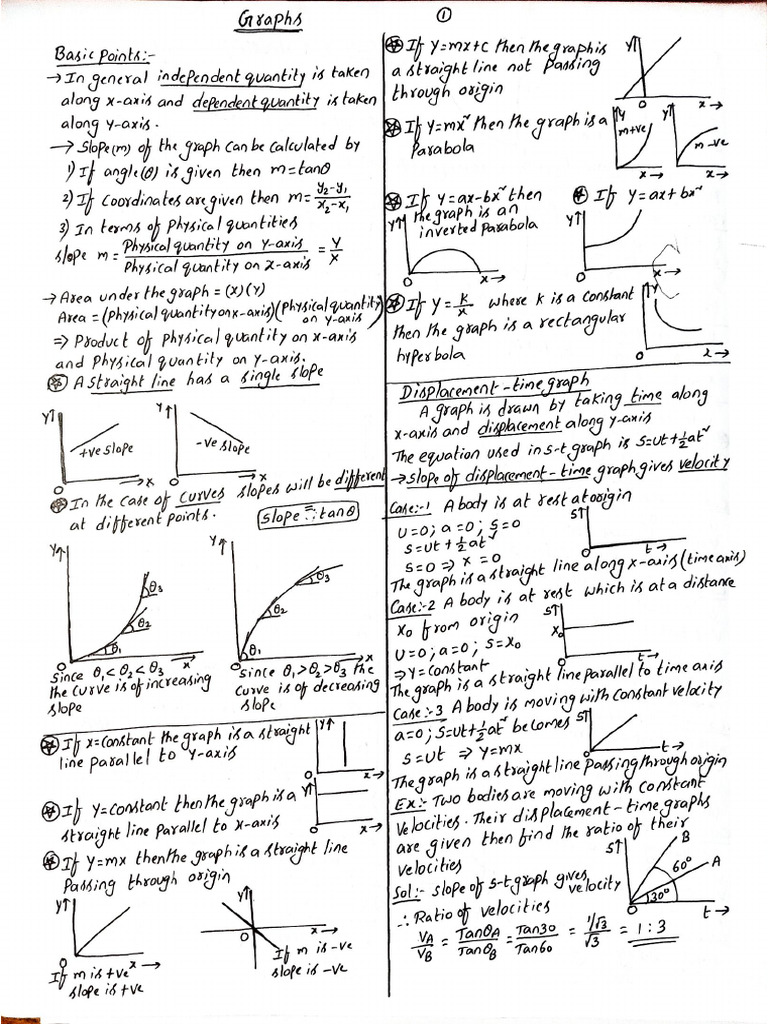 Graphs
①
Basic Points:-
→ In general independent quantity is taken
along x-axis and dependent quantity is taken
along y-axis.
→ Slope(m) of the graph can be calculated by
1) If angle(θ) is given then m=tanθ
2) If Coordinates are given then m= y₂-y₁/x₂-x₁
3) In terms of Physical quantities
slope m = Physical quantity on y-axis/Physical quantity on x-axis = y/x
→ Area under the graph = (x)(y)
Area = (Physical quantity on x-axis)(Physical quantity on y-axis)
⇒ Product of Physical quantity on x-axis
and Physical quantity on y-axis.
A straight line has a single slope
Y↑
+ve slope
O
→x
Y↑
-ve slope
O
→x
In the case of curves slopes will be different
at different points.
slope = tanθ
Y↑
θ₁
θ₂
θ₃
O
x→
Y↑
θ₁
θ₂
θ₃
O
→x
Since θ₁<θ₂<θ₃
the curve is of increasing
slope
Since θ₁>θ₂>θ₃ the
curve is of decreasing
slope
If x=constant the graph is a straight
line parallel to Y-axis
Y↑
O
x→
If Y=constant then the graph is a
straight line parallel to x-axis
Y↑
O
x→
If Y=mx then the graph is a straight line
Passing through origin
Y↑
O
x→
If m is +ve
slope is +ve
Y↑
O
x→
If m is -ve
slope is -ve
If Y=mx+c then the graph is
a straight line not passing
through origin
Y↑
O
x→
If Y=mx² then the graph is a
Parabola
Y
m+ve
x→
Y↑
m-ve
x→
If Y=ax-bx² then
the graph is an
inverted parabola
Y↑
O
x→
If Y=ax+bx²
Y↑
O
x→
If Y= K/x where K is a constant
then the graph is a rectangular
hyperbola
Y
O
x→
Displacement-time graph
A graph is drawn by taking time along
x-axis and displacement along y-axis
The equation used in s-t graph is s=ut+½at²
→ slope of displacement-time graph gives velocity
Case:-1 A body is at rest at origin
u=0; a=0; s=0
s=ut+½at²
s=0 ⇒ x=0
S↑
O
t→
The graph is a straight line along x-axis (time axis)
Case:-2 A body is at rest which is at a distance
x₀ from origin
u=0; a=0; s=x₀
⇒ y=constant
S↑
x₀
O
t→
The graph is a straight line parallel to time axis
Case:-3 A body is moving with constant velocity
a=0; s=ut+½at² becomes
s=ut ⇒ y=mx
S↑
O
t→
The graph is a straight line passing through origin
Ex:- Two bodies are moving with constant
velocities. Their displacement-time graphs
are given then find the ratio of their
velocities
S↑
B
A
60°
30°
O
t→
Sol:- slope of s-t graph gives velocity
∴ Ratio of velocities
V_A/V_B = Tanθ_A/Tanθ_B = Tan30/Tan60 = 1/√3/√3 = 1:3